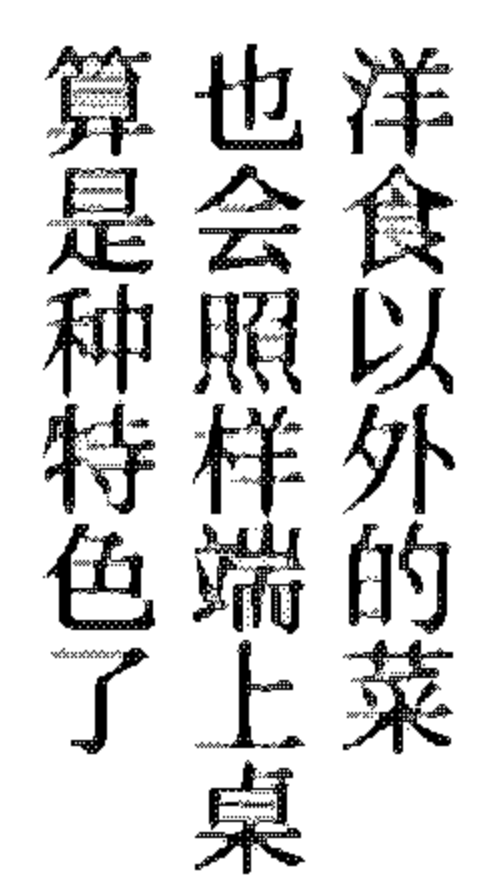 洋食以外的菜
也会照样端上桌
算是种特色了